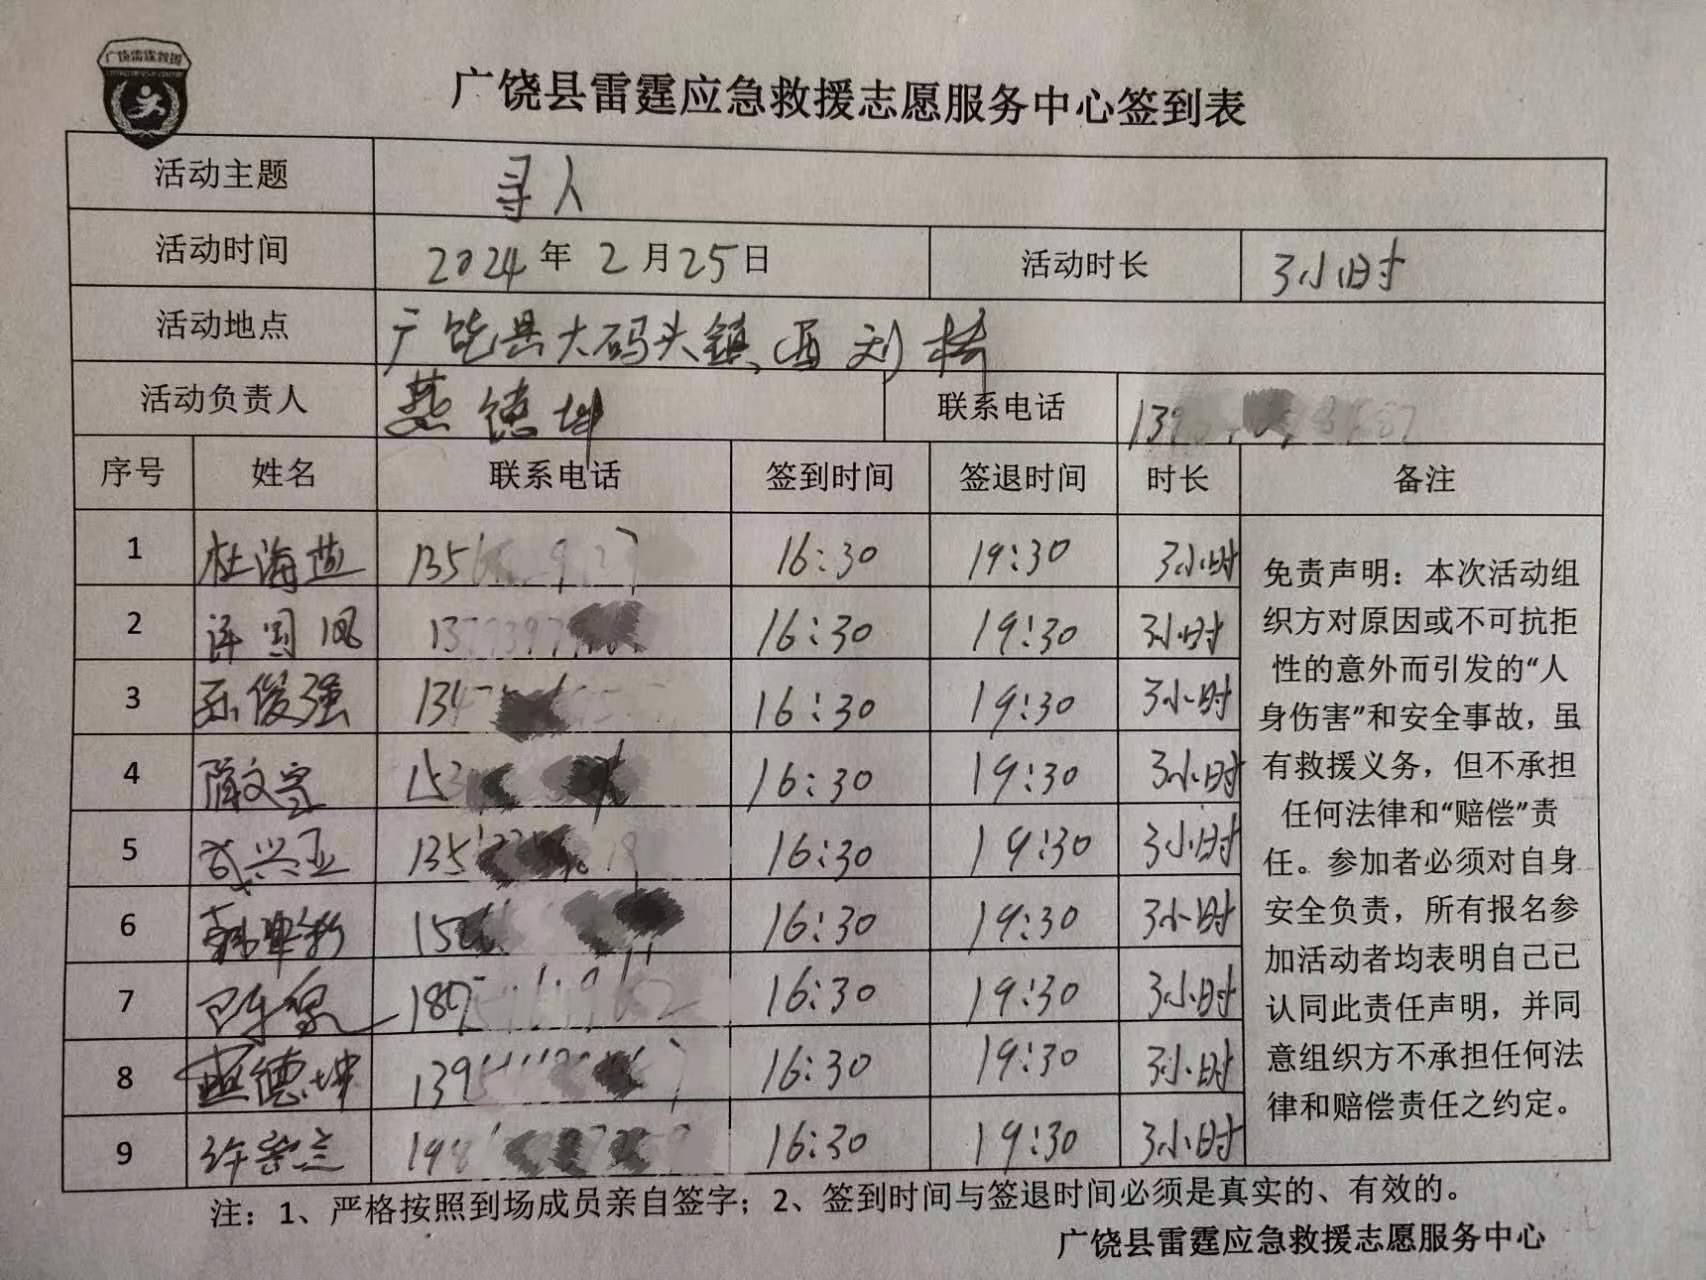 广饶雷霆救援
广饶县雷霆应急救援志愿服务中心签到表
活动主题 寻人
活动时间 2024年2月25日 活动时长 3小时
活动地点 广饶县大码头镇、西刘桥
活动负责人 燕德坤 联系电话 139
序号 姓名 联系电话 签到时间 签退时间 时长 备注
1 杜海燕 135 16:30 19:30 3小时
2 许国凤 13 16:30 19:30 3小时
3 孙俊强 134 16:30 19:30 3小时
4 隋文 153 16:30 19:30 3小时
5 武兴亚 135 16:30 19:30 3小时
6 150 16:30 19:30 3小时
7 187 16:30 19:30 3小时
8 燕德坤 139 16:30 19:30 3小时
9 许 198 16:30 19:30 3小时
免责声明：本次活动组
织方对原因或不可抗拒
性的意外而引发的“人
身伤害”和安全事故，虽
有救援义务，但不承担
任何法律和“赔偿”责
任。参加者必须对自身
安全负责，所有报名参
加活动者均表明自己已
认同此责任声明，并同
意组织方不承担任何法
律和赔偿责任之约定。
注：1、严格按照到场成员亲自签字；2、签到时间与签退时间必须是真实的、有效的。
广饶县雷霆应急救援志愿服务中心